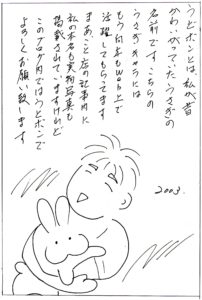 うどボンとは、私が昔
かわいがっていたうさぎの
名前です。こちらの
うさぎキャラには
もう何年もweb上で
活躍してもらってます
まあ、この店の記事内に
私の本名も実物写真も
掲載されていますけれど
このブログ内ではうどボンで
よろしくお願い致します
2003.